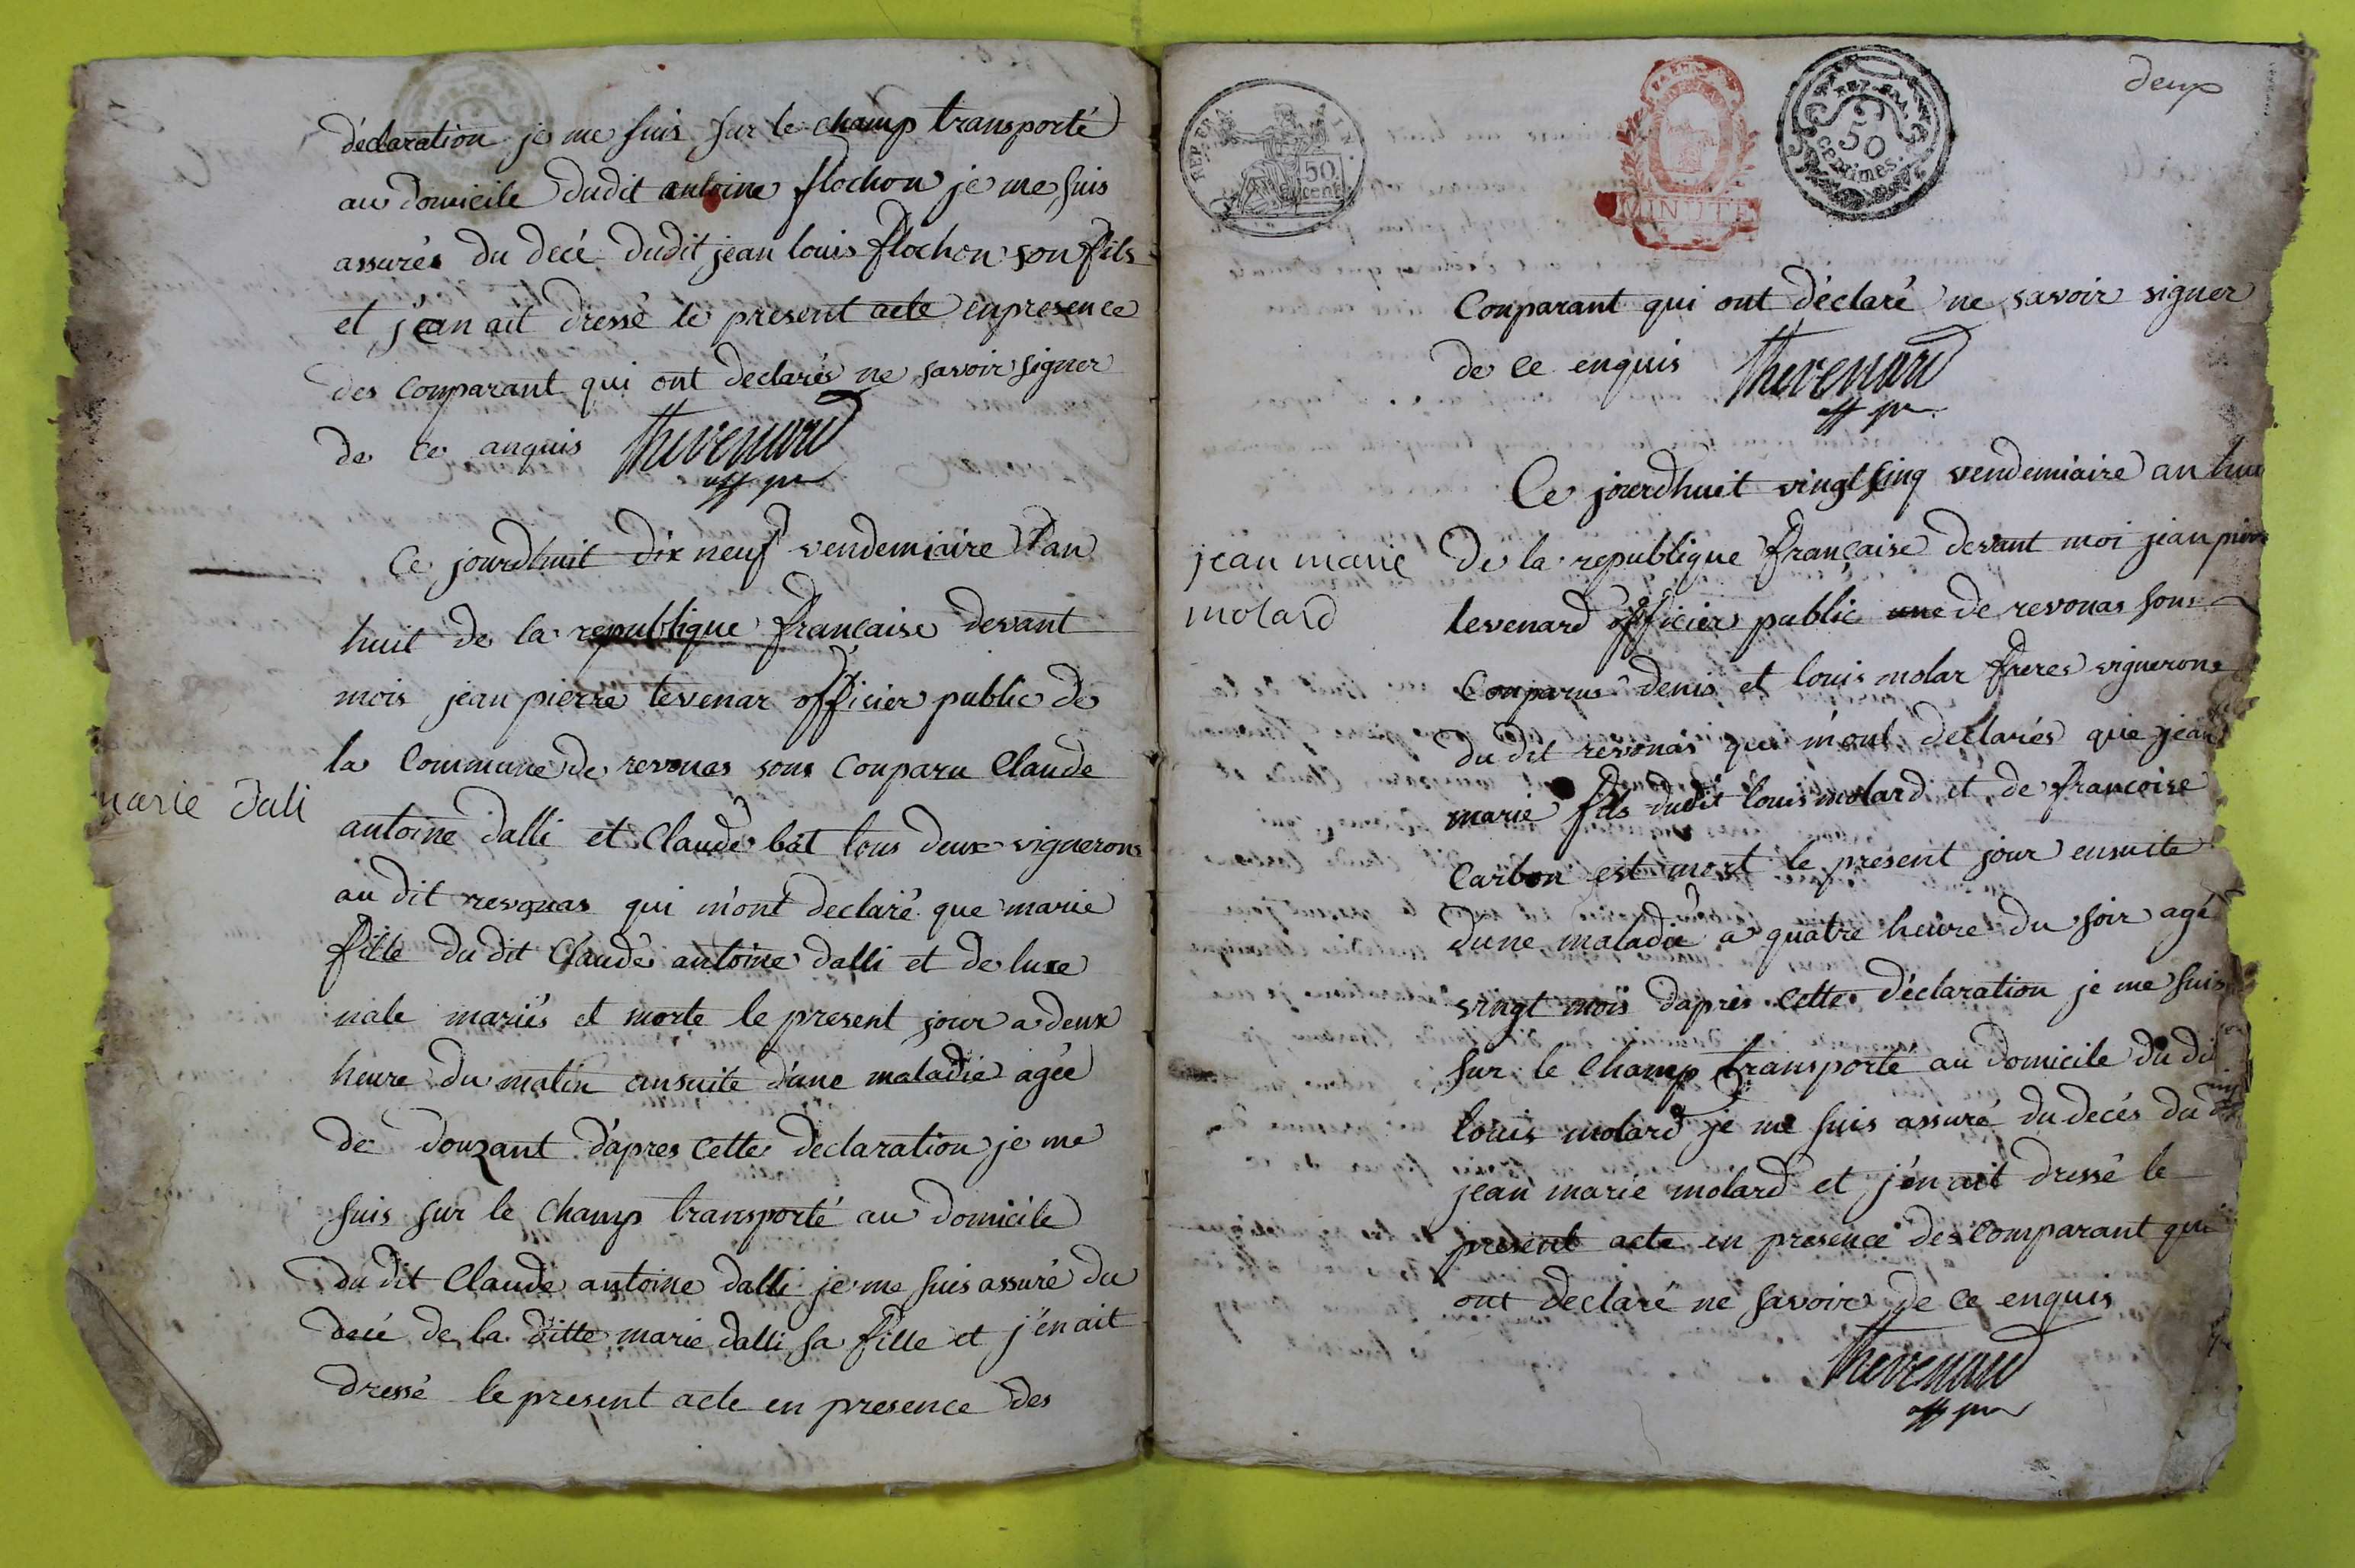 déclaration je me suis sur le champ transporté
au domicile dudit antoine flochon je me suis
assurés du decé dudit jean louis flochon son fils
et j'ean ait dressé le present acte enpresence
des comparant qui ont declarés ne savoir signer
de ce anquis thevenard
off pu
Ce jourdhuit dix neuf vendemiaire l'an
huit de la republique française devant
mois jean pierre tevenar officier public de
la Commune de revonas sons Conparu Claude
marie dali
antoine dalli et Claude bât tous deux vignerons
au dit revonas qui m'ont declaré que marie
fille du dit Claude antoine dalli et de luce
nale mariés et morte le present jour a deux
heure du matin ansuite d'une maladie agée
de douzant d'apres cette declaration je me
suis sur le champ transporté au domicile
du dit Claude antoine dalli je me suis assuré du
decé de la ditte marie dalli sa fille et j'én ait
dressé le present acte en presence des
deux
REP. FRA.
50
cent
MINUTE
REP. FRA.
50
centimes.
Conparant qui ont déclaré ne savoir signer
de ce enquis thevenard
off pu
Ce jourdhuit vingt cinq vendemiaire an huit
jean marie
molard
de la republique française devant moi jean pierre
tevenard officier public une de revonas sons
Conparus denis et louis molar freres vignerons
du dit revonas qui m'ont déclarés que jean
marie fils dudit louis molard et de francoise
Carbon est mort le present jour ensuite
dune maladie a quatre heure du soir agé
vingt mois dapres cette déclaration je me suis
sur le champ transporté au domicile du dit
louis molard je me suis assuré du decés du dit
jean marie molard et j'én ait dressé le
present acte en presence des comparant qui
ont declaré ne savoir de ce enquis
thevenard
off pu